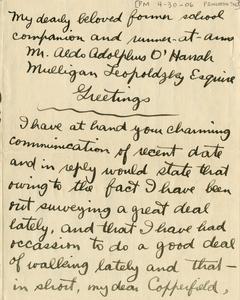 (PM 4-30-06
My dearly beloved former school
companion and runner-at-arms
Mr. Aldo Adolphus O'Harrah
Mulligan Leopoldzby Esquire
Greetings
I have at hand you charming
communication of recent date
and in reply would state that
owing to the fact I have been
out surveying a great deal
lately, and that I have had
occassion to do a good deal
of walking lately and that —
in short, my dear Copperfield,